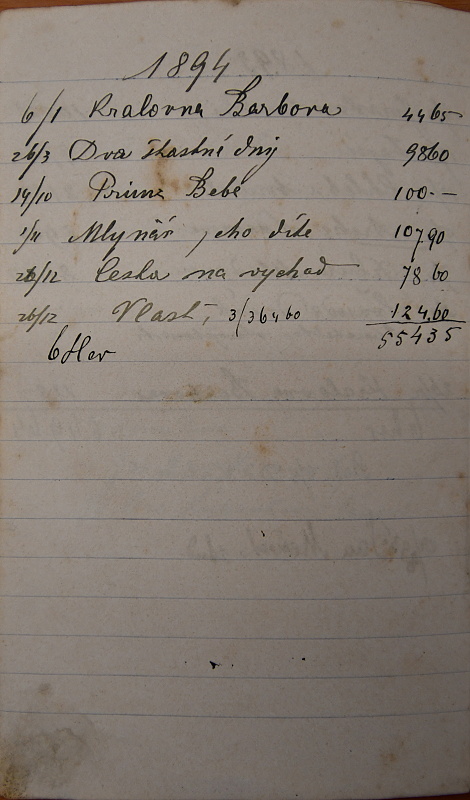 1894
6/1 Kralovna Barbora 4465
26/3 Dva šťastné dny 9860
14/10 Princ Bebé 100.-
1/11 Mlynář jeho dítě 10790
26/12 Cesta na vychod 7860
26/12 Vlast, 3/36460 124.60
6 Her 55435